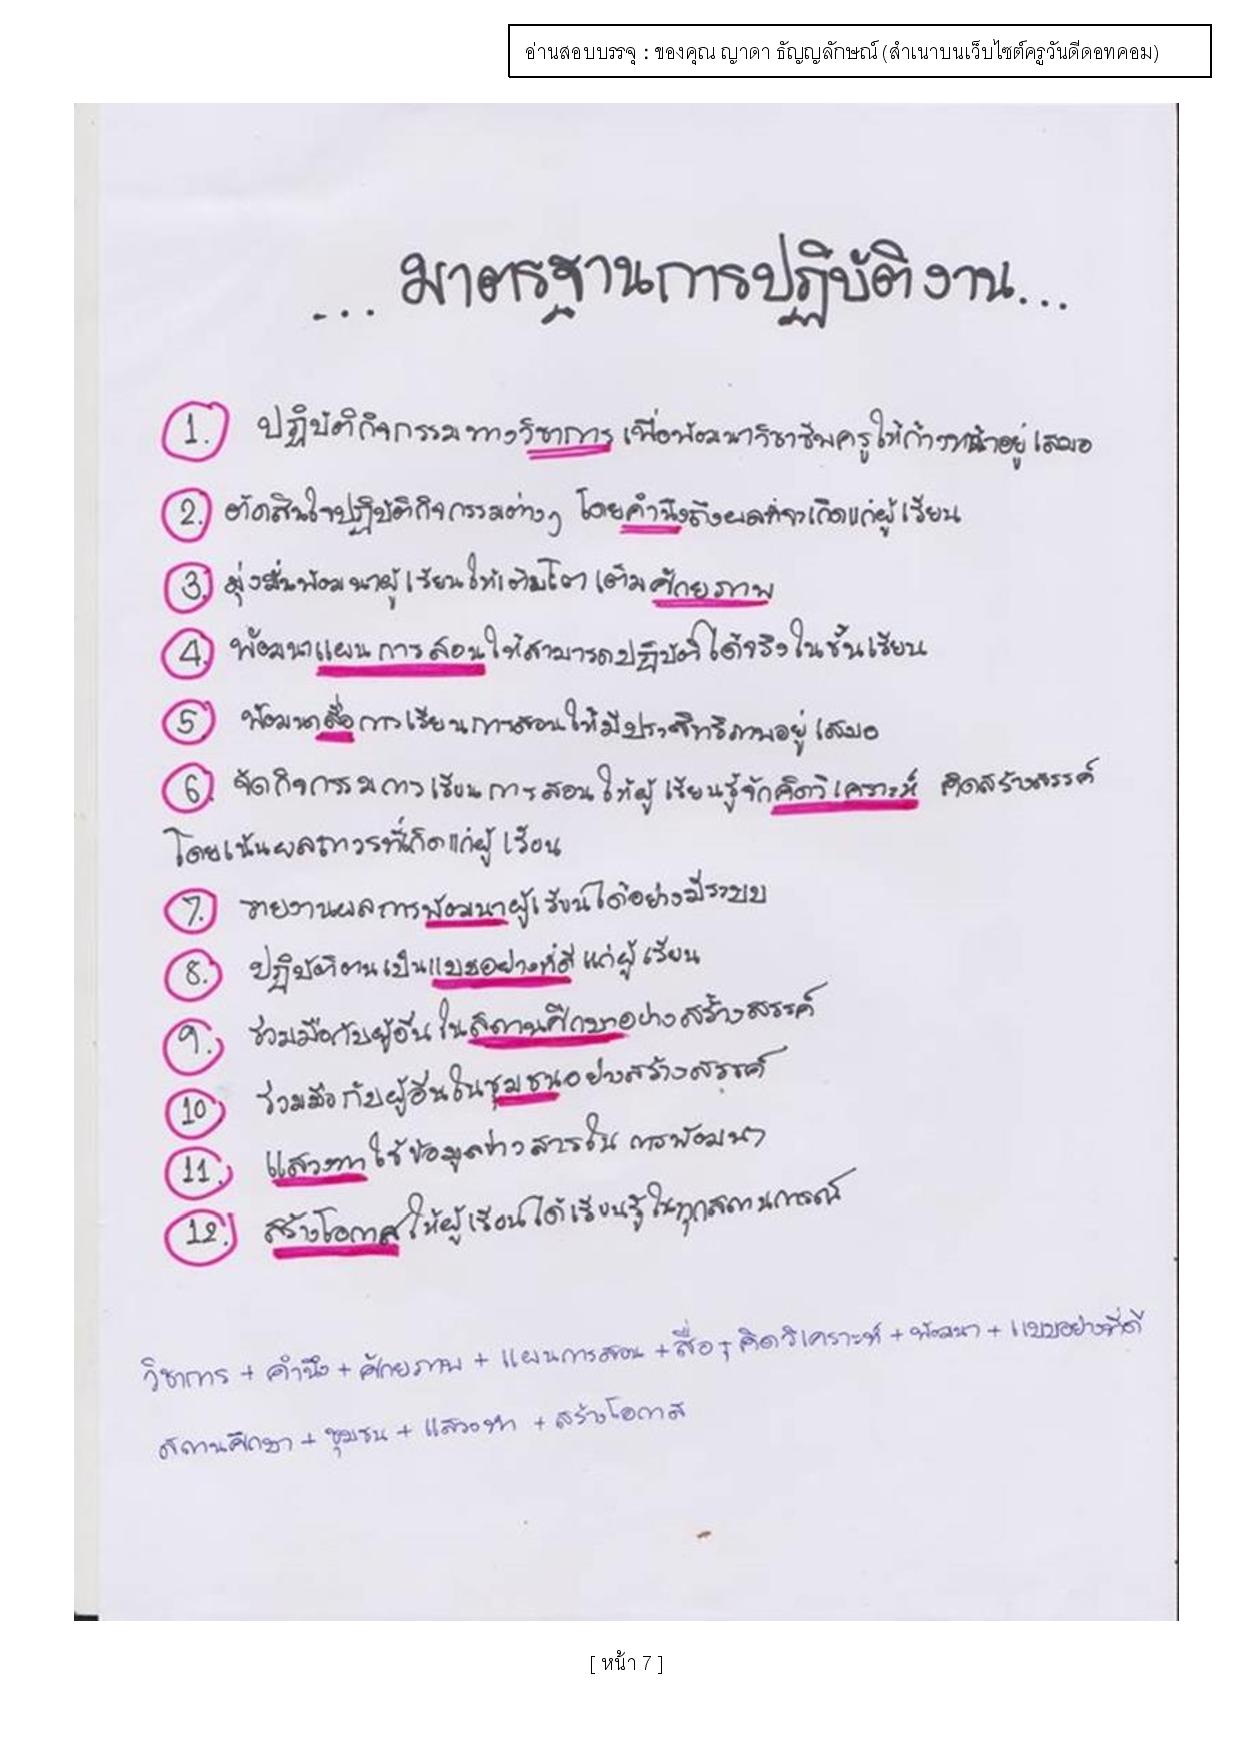 อ่านสอบบรรจุ : ของคุณ ญาดา ธัญญลักษณ์ (สำเนาบนเว็บไซต์ครูวันดีดอทคอม)
... มาตรฐานการปฏิบัติงาน...
1. ปฏิบัติกิจกรรมทางวิชาการ เพื่อพัฒนาวิชาชีพครูให้ก้าวหน้าอยู่เสมอ
2. ตัดสินใจปฏิบัติกิจกรรมต่างๆ โดยคำนึงถึงผลที่จะเกิดแก่ผู้เรียน
3. มุ่งมั่นพัฒนาผู้เรียนให้เติบโตเต็มศักยภาพ
4. พัฒนาแผนการสอนให้สามารถปฏิบัติได้จริงในชั้นเรียน
5. พัฒนาสื่อการเรียนการสอนให้มีประสิทธิภาพอยู่เสมอ
6. จัดกิจกรรมการเรียนการสอนให้ผู้เรียนรู้จักคิดวิเคราะห์ คิดสร้างสรรค์
โดยเน้นผลถาวรที่เกิดแก่ผู้เรียน
7. รายงานผลการพัฒนาผู้เรียนได้อย่างมีระบบ
8. ปฏิบัติตนเป็นแบบอย่างที่ดีแก่ผู้เรียน
9. ร่วมมือกับผู้อื่นในสถานศึกษาอย่างสร้างสรรค์
10 ร่วมมือกับผู้อื่นในชุมชนอย่างสร้างสรรค์
11. แสวงหาใช้ข้อมูลข่าวสารในการพัฒนา
12. สร้างโอกาสให้ผู้เรียนได้เรียนรู้ในทุกสถานการณ์
วิชาการ + คำนึง + ศักยภาพ + แผนการสอน + สื่อ + คิดวิเคราะห์ + พัฒนา + แบบอย่างที่ดี
สถานศึกษา + ชุมชน + แสวงหา + สร้างโอกาส
[ หน้า 7 ]